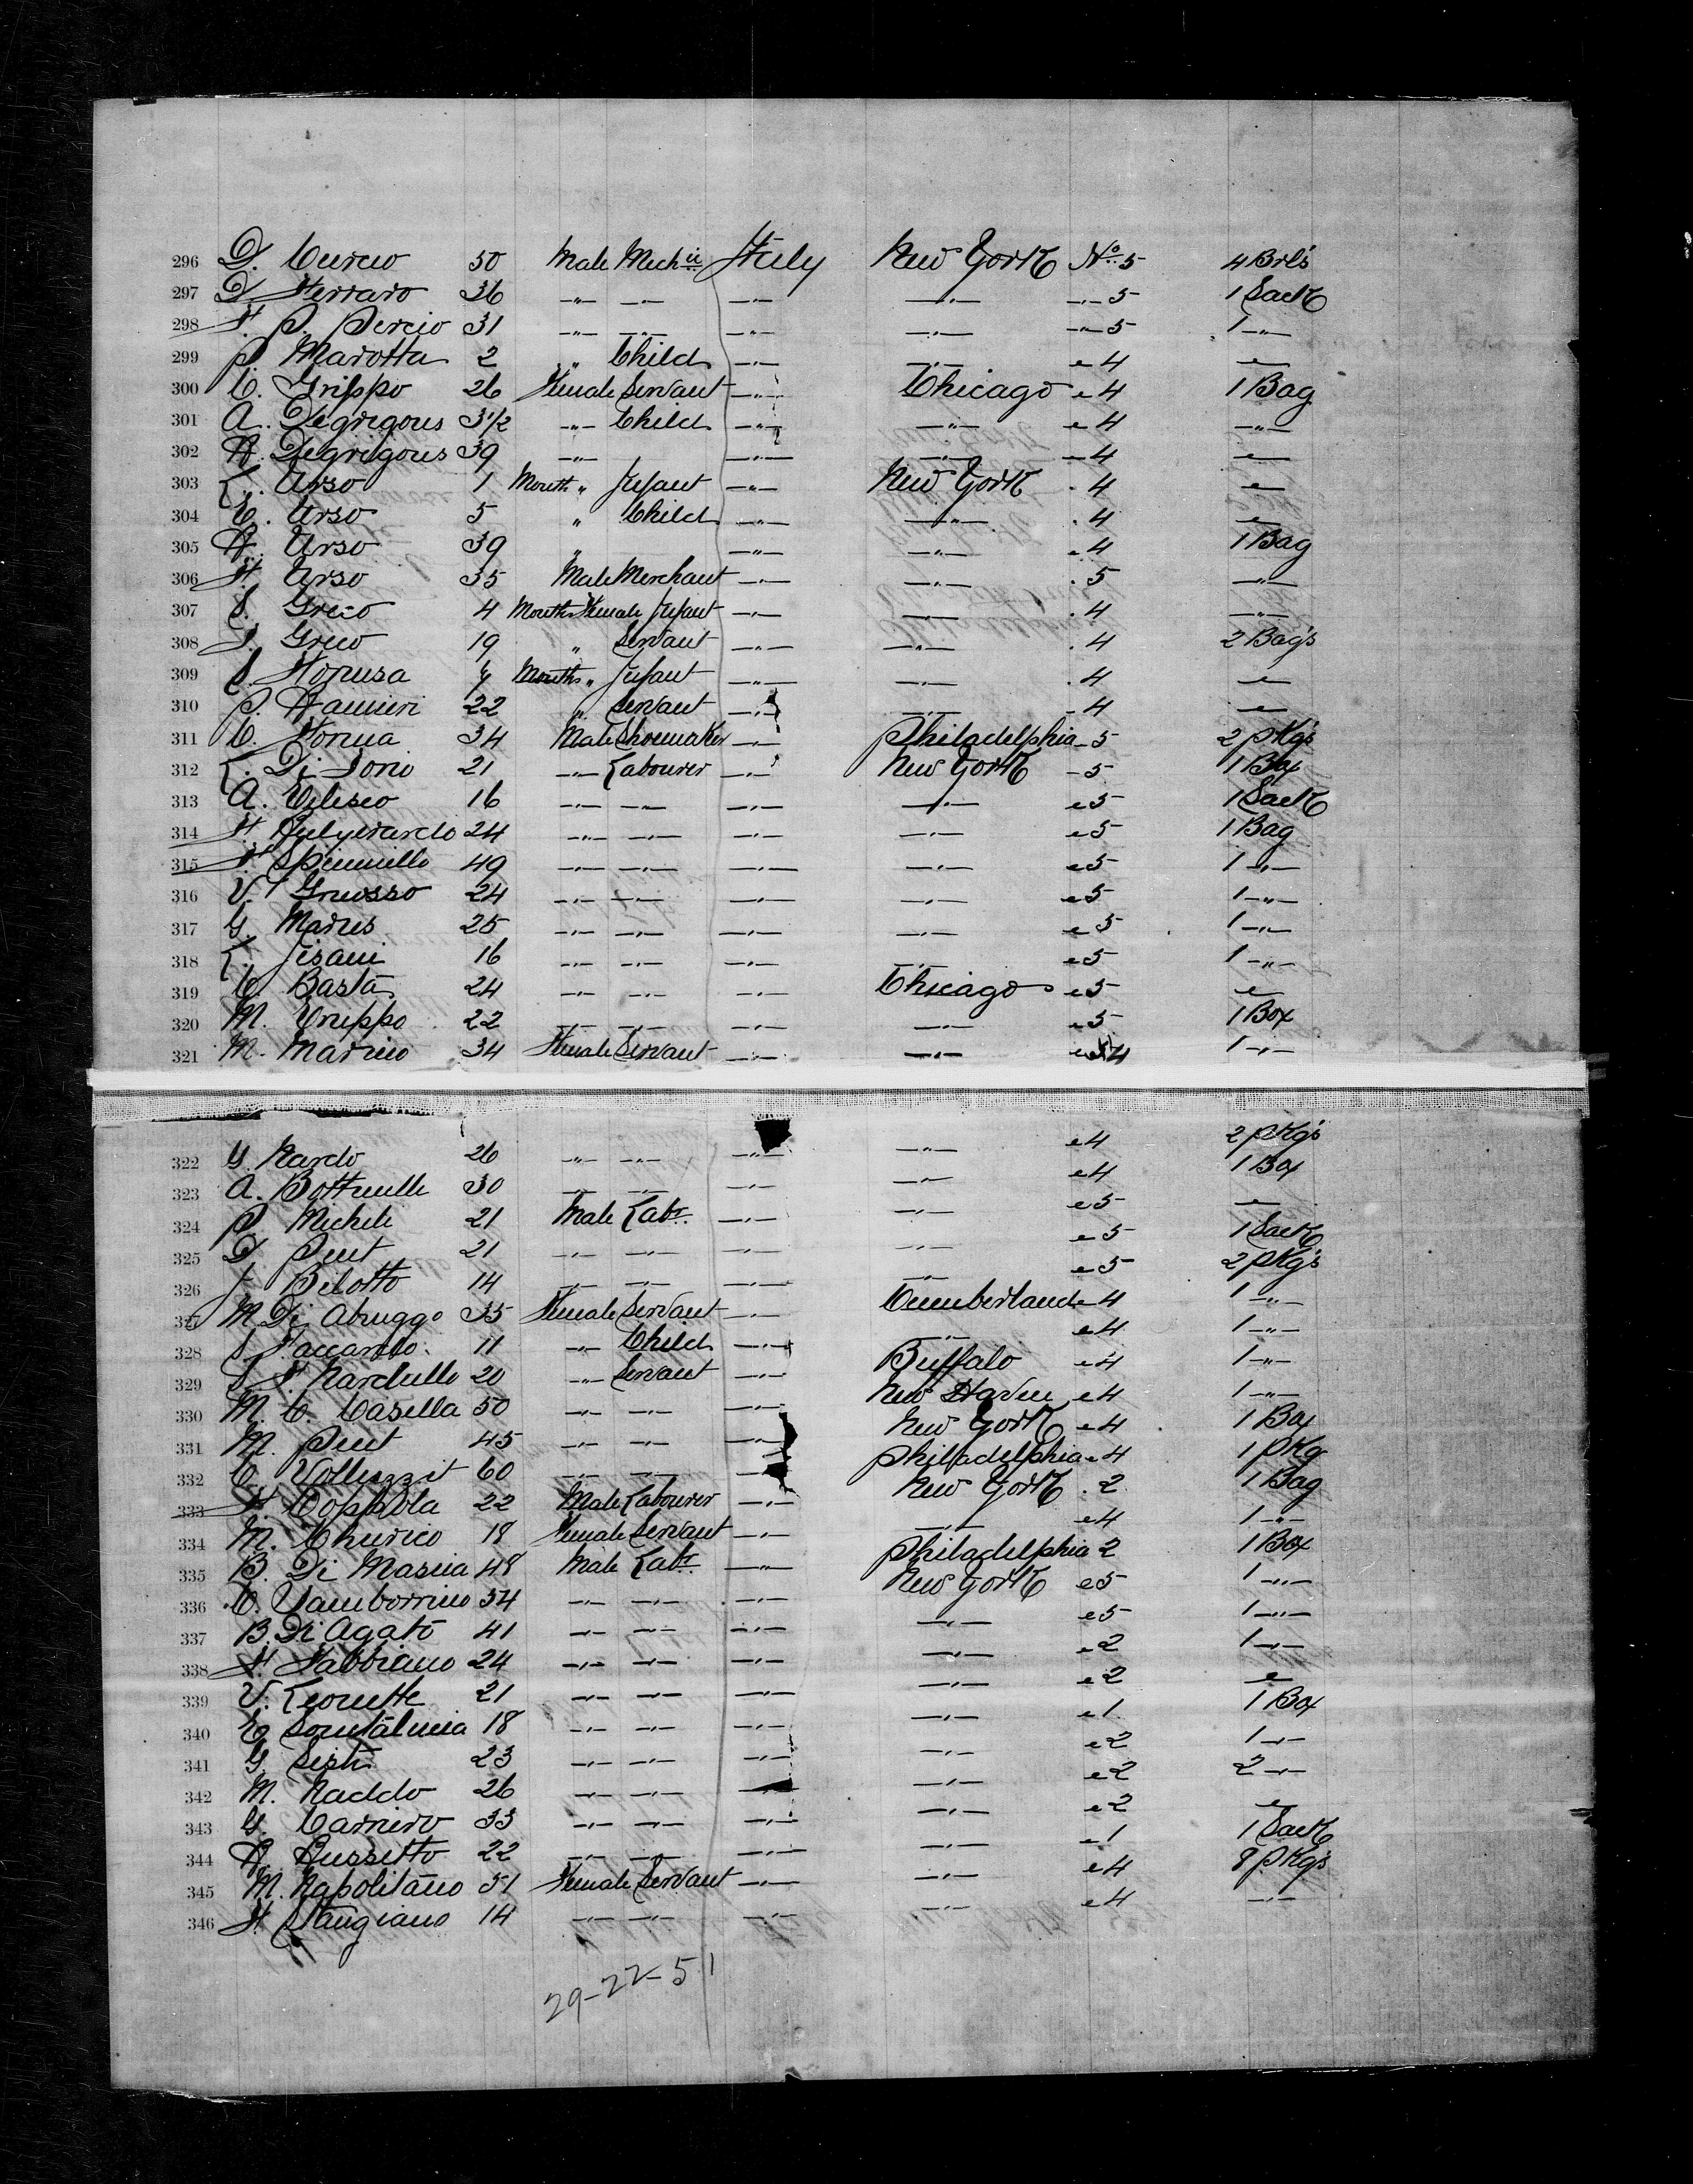 296 D. Curcio 50 Male Mech:ic Italy New York No. 5 4 Brl's
297 D Ferraro 36 -"- -"- -"- -"- -"- 5 1 Sack
298 F. P. Perejo 31 -"- -"- -"- -"- -"- 5 1 -"-
299 P. Marotta 2 " Child -"- -"- " 4 "
300 C. Grippo 26 Female Servant -"- Chicago " 4 1 Bag
301 A. Degrigous 3 1/2 -"- Child -"- -"- " 4 -"-
302 A. Degrigous 39 -"- -"- -"- " 4 "
303 L. Urso 1 Month " Infant -"- New York " 4 "
304 C. Urso 5 " Child -"- -"- " 4 "
305 A. Urso 39 " -"- -"- " 4 1 Bag
306 F. Urso 35 Male Merchant -"- -"- " 5 -"-
307 S. Greco 4 Months Female Infant -"- -"- " 4 -"-
308 S. Greco 19 " Servant -"- -"- " 4 2 Bag's
309 Months " Infant -"- -"- " 4 "
310 P. 22 " Servant -"- -"- " 4 "
311 C. 34 Male Shoemaker -"- Philadelphia " 5 2 pKg's
312 L. Di Iorio 21 -"- Labourer -"- New York " 5 1 Box
313 A. 16 -"- -"- -"- -"- " 5 1 Sack
314 F. 24 -"- -"- -"- -"- " 5 1 Bag
315 F. Spinnello 49 -"- -"- -"- -"- " 5 1 -"-
316 V. Gruosso 24 -"- -"- -"- -"- " 5 1 -"-
317 G. Marus 25 -"- -"- -"- -"- " 5 1 -"-
318 L. Jisani 16 -"- -"- -"- -"- " 5 1 -"-
319 C. Basta 24 -"- -"- -"- Chicago " 5 "
320 M. Cruppo 22 -"- -"- -"- -"- " 5 1 Box
321 M. Marino 34 Female Servant -"- -"- " 4 1 -"-
322 G. Nardo 26 -"- -"- -"- -"- " 4 2 pKg's
323 A. Bottinelli 30 -"- -"- -"- -"- " 4 1 Box
324 P. Micheli 21 Male Labr. -"- -"- " 5 "
325 D. Peut 21 -"- -"- -"- -"- " 5 1 Sack
326 J. Bilotto 14 -"- -"- -"- -"- " 5 2 pKg's
327 M. Di Abruggo 35 Female Servant -"- Cumberland " 4 1 -"-
328 S. Faccando 11 -"- Child -"- -"- " 4 1 -"-
329 S. F. Nardullo 20 -"- Servant -"- Buffalo " 4 1 -"-
330 M. C. Casella 50 -"- -"- -"- New Haven " 4 1 -"-
331 M. Peut 45 -"- -"- -"- New York " 4 1 Box
332 C. 60 -"- -"- -"- Philadelphia " 4 1 pKg
333 F. Coppola 22 Male Labourer -"- New York " 2 1 Bag
334 M. Churico 18 Female Servant -"- -"- " 4 1 -"-
335 B. Di Mascia 48 Male Labr. -"- Philadelphia 2 1 Box
336 C. Tamborrino 34 -"- -"- -"- New York " 5 1 -"-
337 B. Di Agato 41 -"- -"- -"- -"- " 5 1 -"-
338 F. Fabbiano 24 -"- -"- -"- -"- " 2 1 -"-
339 V. Leonette 21 -"- -"- -"- -"- " 2 "
340 18 -"- -"- -"- -"- " 1 1 Box
341 G. Sisti 23 -"- -"- -"- -"- " 2 1 -"-
342 M. Naddo 26 -"- -"- -"- -"- " 2 2 -"-
343 G. Carniro 33 -"- -"- -"- -"- " 2 "
344 A. Russetto 22 -"- -"- -"- -"- " 1 1 Sack
345 M. Napolitano 51 Female Servant -"- -"- " 4 8 pKg's
346 F. Stangiano 14 -"- -"- -"- -"- " 4 -"-
29-22-51